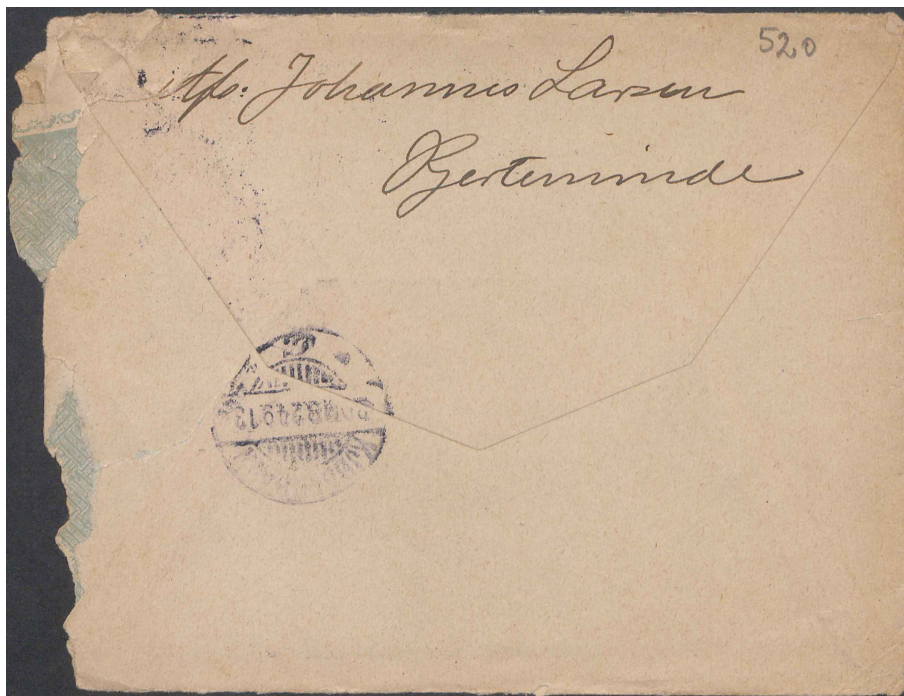 520
Afs: Johannes Larsen
Kjerteminde